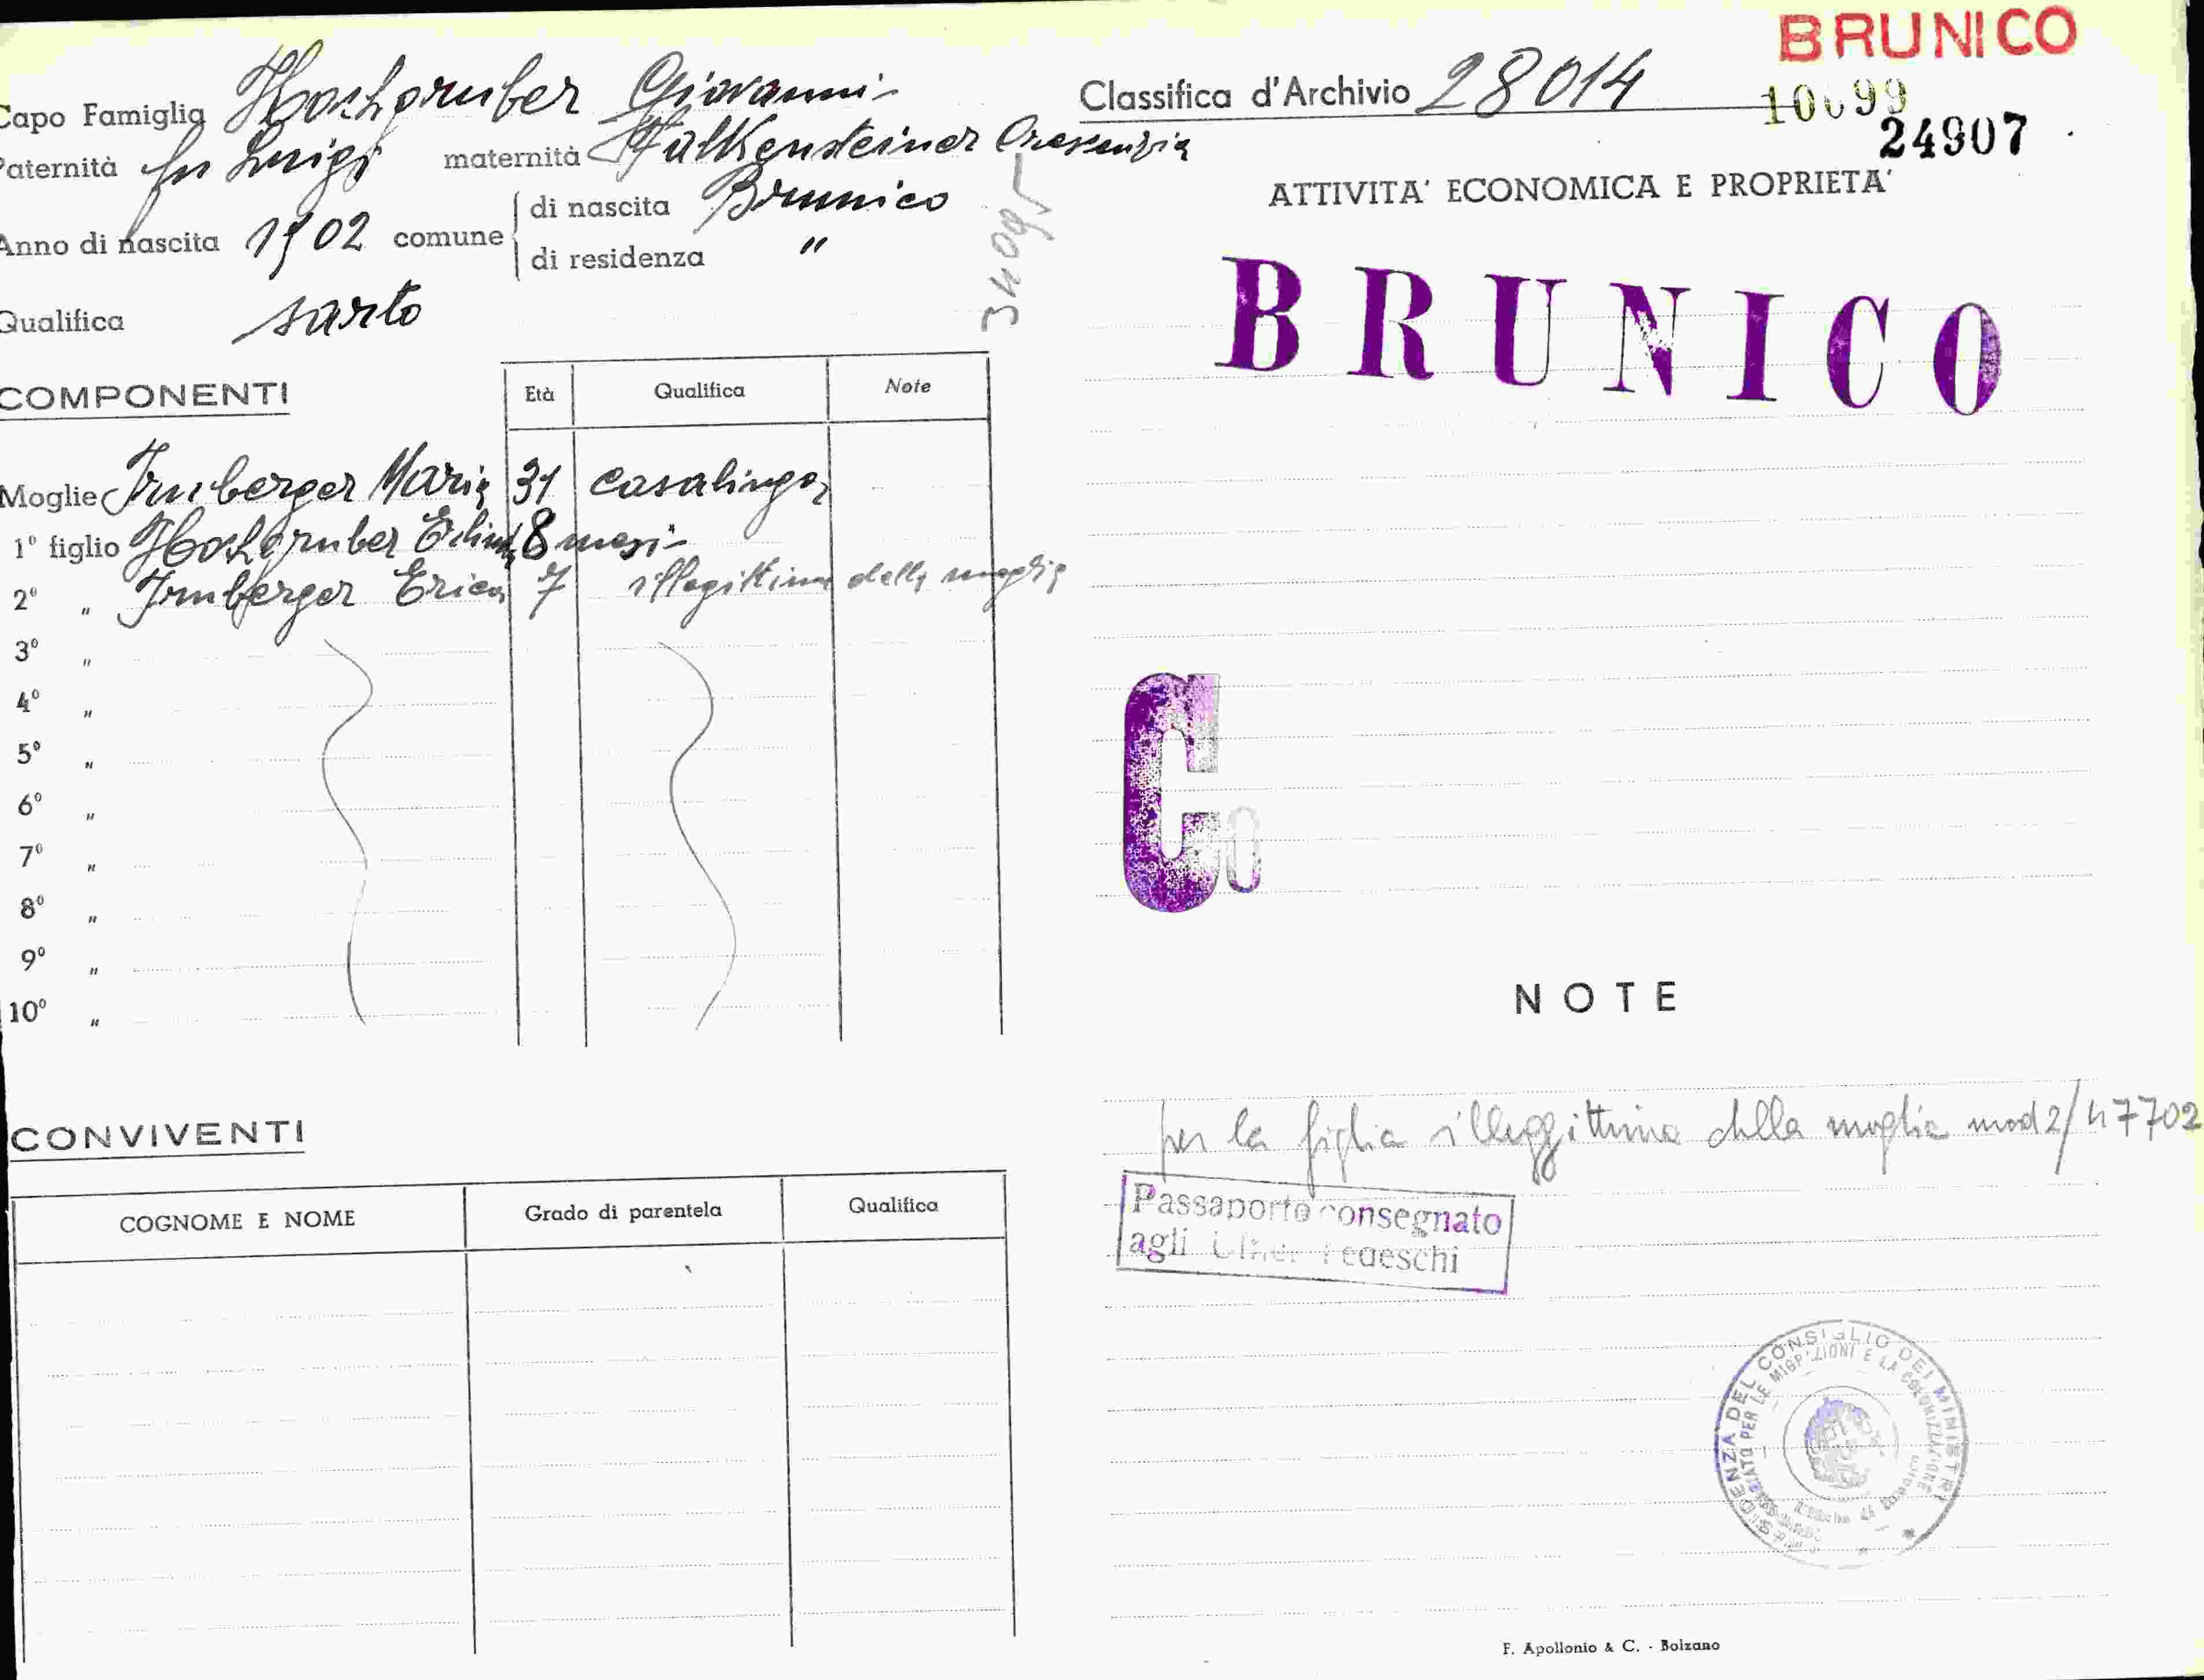 BRUNICO
Capo Famiglia Hochgruber Giovanni
Classifica d'Archivio 28014
10099
24907
Paternità fu Luigi maternità Falkensteiner Crescenzia
Anno di nascita 1902 comune di nascita Brunico
di residenza "
34095
Qualifica sarto
ATTIVITA' ECONOMICA E PROPRIETA'
BRUNICO
COMPONENTI Età Qualifica Note
Moglie Irnberger Maria 31 casalinga
1° figlio Hochgruber 8 mesi
2° " Irnberger Erica 7 illegittima della moglie
3° "
4° "
5° "
6° "
7° "
8° "
9° "
10° "
C
0
NOTE
per la figlia illeggittima della moglie mod 2/47702
Passaporto consegnato
agli Uffici Tedeschi
CONVIVENTI
COGNOME E NOME Grado di parentela Qualifica
PRESIDENZA DEL CONSIGLIO DEI MINISTRI
PER LE MIGRAZIONI E LA COLONIZZAZIONE
F. Apollonio & C. - Bolzano